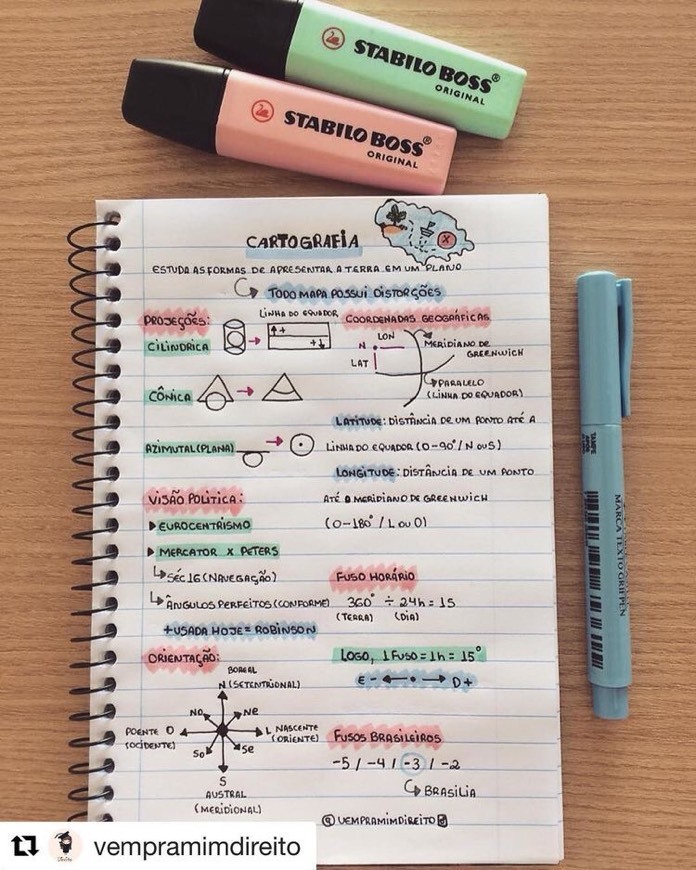 STABILO BOSS®
ORIGINAL
STABILO BOSS®
ORIGINAL
CARTOGRAFIA
ESTUDA AS FORMAS DE APRESENTAR A TERRA EM UM PLANO
TODO MAPA POSSUI DISTORÇÕES
PROJEÇÕES:
LINHA DO EQUADOR
CILÍNDRICA
CÔNICA
AZIMUTAL (PLANA)
COORDENADAS GEOGRÁFICAS
LON
N
LAT
MERIDIANO DE
GREENWICH
PARALELO
(LINHA DO EQUADOR)
LATITUDE: DISTÂNCIA DE UM PONTO ATÉ A
LINHA DO EQUADOR (0-90°/N OU S)
LONGITUDE: DISTÂNCIA DE UM PONTO
ATÉ O MERIDIANO DE GREENWICH
(0-180° / L OU O)
VISÃO POLÍTICA:
EUROCENTRISMO
MERCATOR X PETERS
SÉC 16 (NAVEGAÇÃO)
ÂNGULOS PERFEITOS (CONFORME)
+ USADA HOJE = ROBINSON
FUSO HORÁRIO
360° ÷ 24h = 15
(TERRA) (DIA)
LOGO, 1 FUSO = 1h = 15°
E - ← • → D +
ORIENTAÇÃO:
BOREAL
N (SETENTRIONAL)
NO NE
POENTE O L NASCENTE
(OCIDENTE) (ORIENTE)
SO SE
S
AUSTRAL
(MERIDIONAL)
FUSOS BRASILEIROS
-5 / -4 / -3 / -2
BRASÍLIA
@VEMPRAMIMDIREITO
MARCA TEXTO GRIFPEN
vempramimdireito